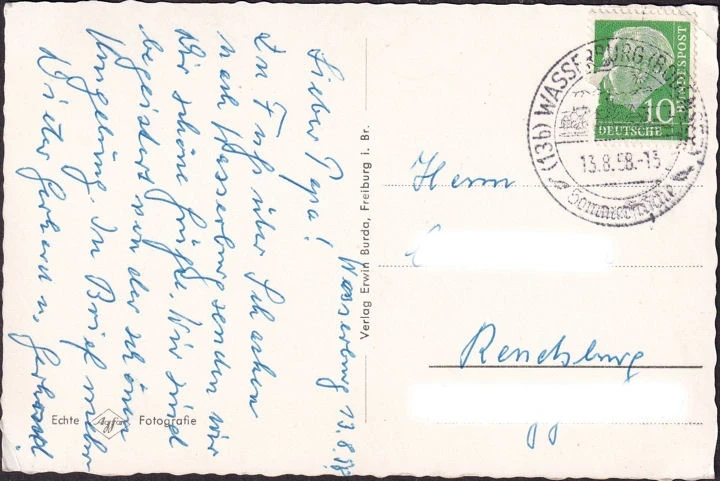 Wasserburg 13.8.58
Lieber Papa!
Zu Fuß über Schachen
nach Wasserburg senden wir
Dir schöne Grüße. Wir sind
begeistert von der schönen
Umgebung. In Brief mehr
Dieter Gerhard u.
Echte Agfa Fotografie
Verlag Erwin Burda, Freiburg i. Br.
(13b) WASSERBURG (BODENSEE)
13.8.58.-13
Sommerfrische
10
DEUTSCHE
BUNDESPOST
Herrn
Rendsburg